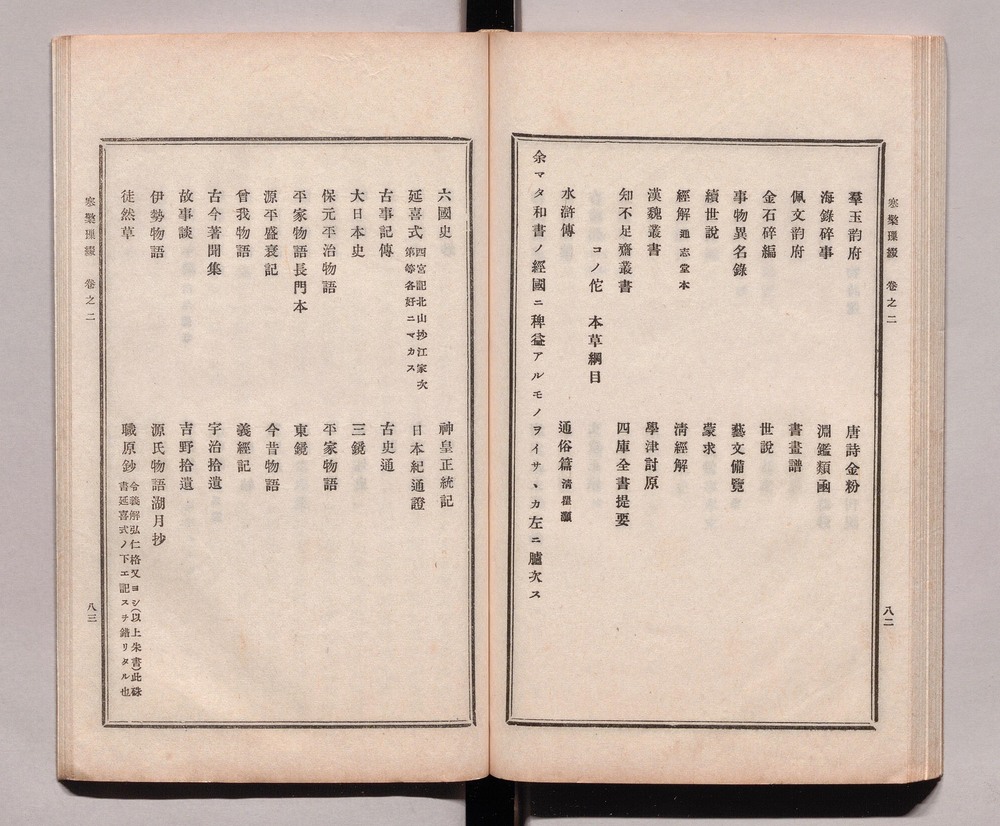 寒檠璅綴 卷之二
羣玉韵府 唐詩金粉
海錄碎事 淵鑑類函
佩文韵府 書畫譜
金石碎編 世說
事物異名錄 藝文備覽
續世說 蒙求
經解通志堂本 淸經解
漢魏叢書 學津討原
知不足齋叢書 四庫全書提要
コノ佗 本草綱目
水滸傳 通俗篇淸瞿灝
余マタ和書ノ經國ニ稗益アルモノヲイサヽカ左ニ臚次ス
八二
六國史 神皇正統記
延喜式四宮記北山抄江家次第等各好ニマカス 日本紀通證
古事記傳 古史通
大日本史 三鏡
保元平治物語 平家物語
平家物語長門本 東鏡
源平盛衰記 今昔物語
曾我物語 義經記
古今著聞集 宇治拾遺
故事談 吉野拾遺
伊勢物語 源氏物語湖月抄
徒然草 職原鈔令義解弘仁格又ヨシ(以上朱書)此硃書延喜式ノ下エ記スヲ錯リタル也
寒檠璅綴 卷之二
八三